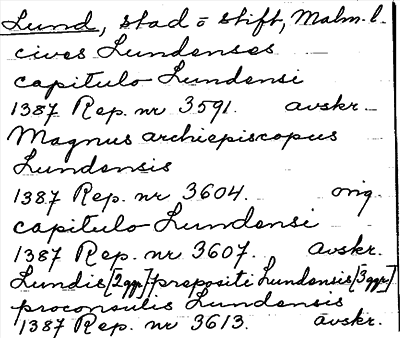 Lund, stad o stift, Malm. l.
cives Lundenses
capitulo Lundensi
1387 Rep. nr 3591. avskr.
Magnus archiepiscopus
Lundensis
1387 Rep. nr 3604. orig.
capitulo Lundensi
1387 Rep. nr 3607. avskr.
Lundis [2ggr] prepositi Lundensis [3ggr]
proconsulis Lundensis
1387 Rep. nr 3613. avskr.